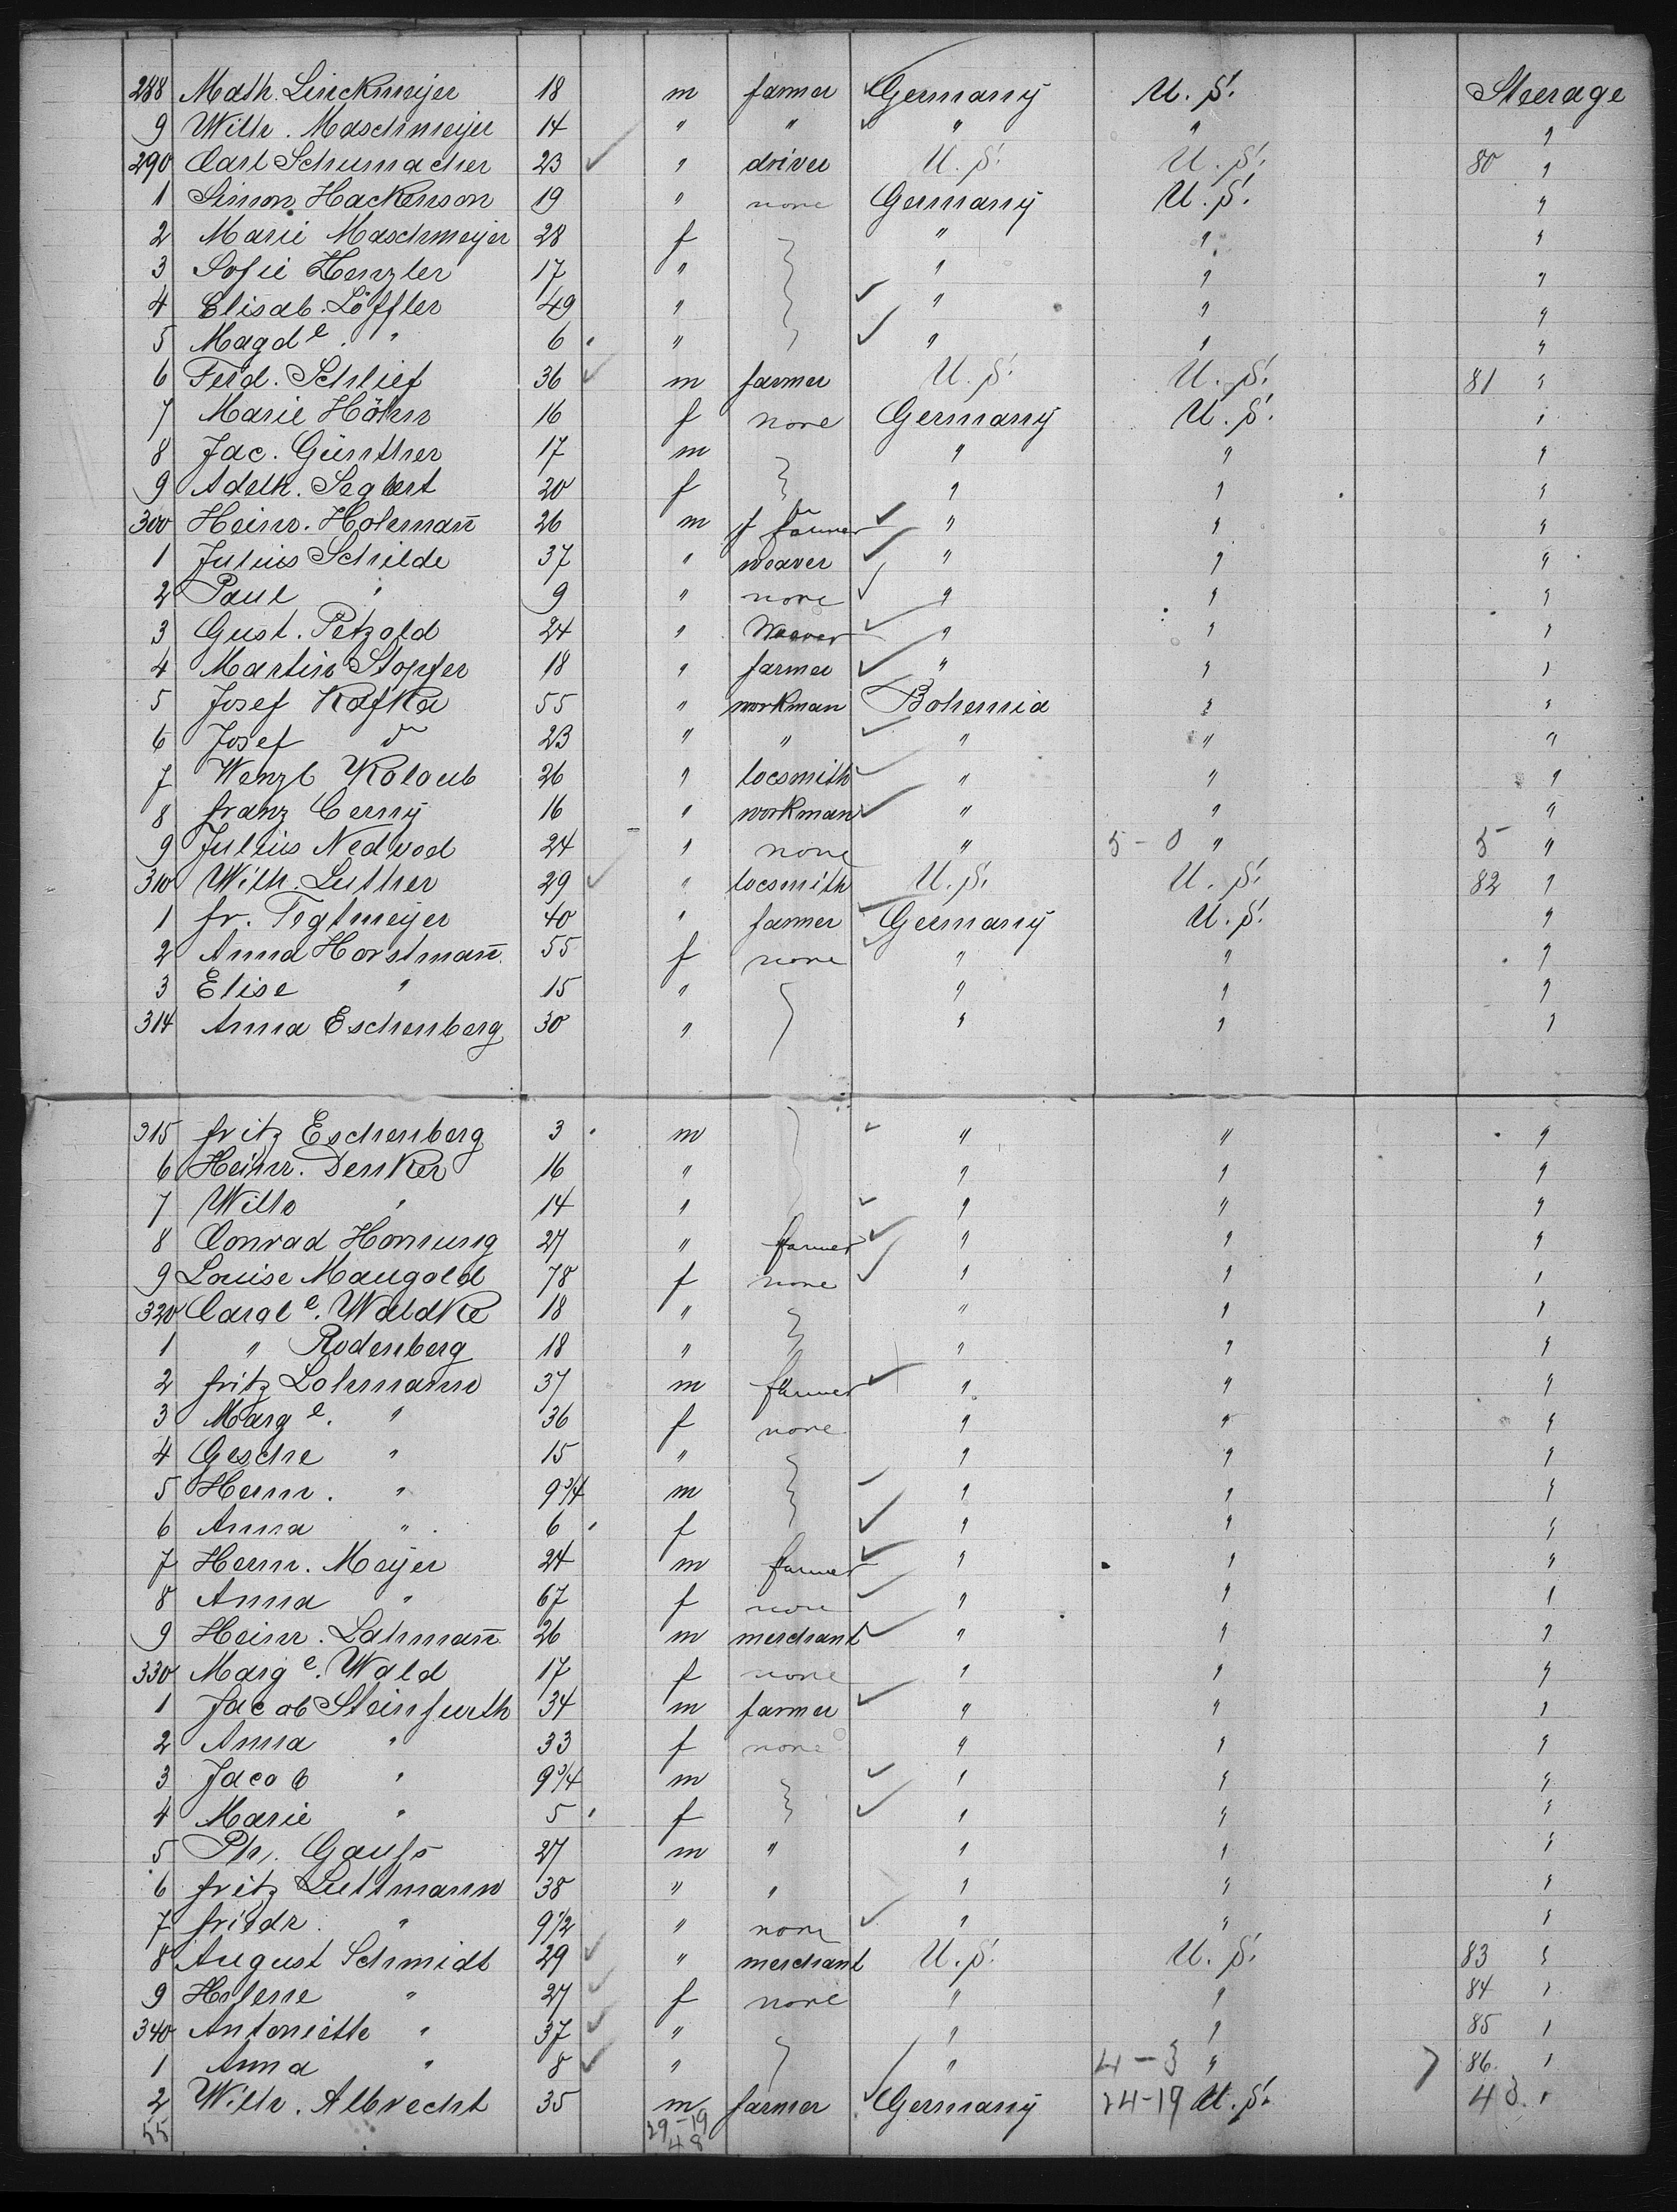 288 Math. Linckmeijer 18 m farmer Germany U. S. Steerage
9 Wilh. Maschmeijer 14 " " " " "
290 Carl Schumacher 23 " driver U. S. U. S. 80 "
1 Simon Hackenson 19 " none Germany U. S. "
2 Marie Maschmeijer 28 f " " "
3 Sofie Henzler 17 " " " "
4 Elisab. Löffler 49 " " " "
5 Magd e. " 6 " " " "
6 Ferd. Schlief 36 m farmer U. S. U. S. 81 "
7 Marie Höhn 16 f none Germany U. S. "
8 Jac. Günther 17 m " " "
9 Adelh. Segbert 20 f " " "
300 Heinr. Holman̄ 26 m farmer " " "
1 Julius Schilde 37 " weaver " " "
2 Paul " 9 " none " " "
3 Gust. Petzold 24 " Weaver " " "
4 Martin Stopfer 18 " farmer " " "
5 Josef Kafka 55 " workman Bohemia " "
6 Josef do 23 " " " " "
7 Wenzl Koloub 26 " locsmith " " "
8 franz Cerny 16 " workman " " "
9 Julius Nedwod 24 " none " 5-0 " 5 "
310 Wilh. Luther 29 " locsmith U. S. U. S. 82 "
1 fr. Tegtmeijer 40 " farmer Germany U. S. "
2 Anna Horstman̄ 55 f none " " "
3 Elise " 15 " " " "
314 Anna Eschenberg 30 " " " "
315 fritz Eschenberg 3 m " " "
6 Heinr. Denker 16 " " " "
7 Wilh " 14 " " " "
8 Conrad Hornung 27 " farmer " " "
9 Louise Maugold 78 f none " " "
320 Carol e. Waldke 18 " " " "
1 " Rodenberg 18 " " " "
2 fritz Lohmann 37 m farmer " " "
3 Marg e. " 36 f none " " "
4 Gesche " 15 " " " "
5 Herm. " 9 3/4 m " " "
6 Anna " 6 f " " "
7 Herm. Meijer 24 m farmer " " "
8 Anna " 67 f none " " "
9 Heinr. Lahman̄ 26 m merchant " " "
330 Marg e. Wald 17 f none " " "
1 Jacob Steinfurth 34 m farmer " " "
2 Anna " 33 f none " " "
3 Jacob " 9 3/4 m " " "
4 Marie " 5 f " " "
5 Ph. Gauss 27 m " " " "
6 fritz Luttmann 38 " " " " "
7 friedr. " 9 1/2 " none " " "
8 August Schmidt 29 " merchant U. S. U. S. 83 "
9 Helene " 27 f none " " 84 "
340 Antoniette " 37 " " " 85 "
1 Anna " 8 " " 4-3 " 86. "
2 Wilh. Albrecht 35 m farmer Germany 24-19 U. S. 43. "
55 29-19
48